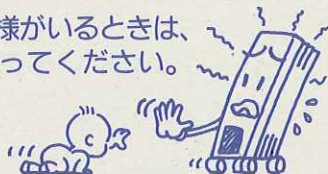 様がいるときは、
ってください。